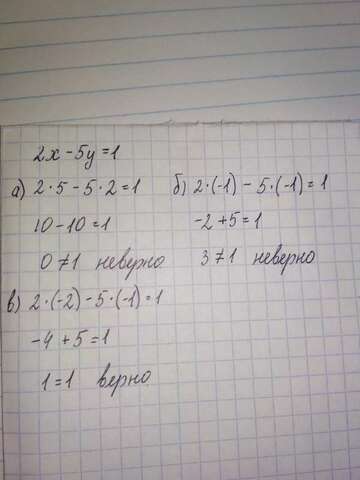 2x - 5y = 1
а) 2·5 - 5·2 = 1
10 - 10 = 1
0 ≠ 1 неверно
б) 2·(-1) - 5·(-1) = 1
-2 + 5 = 1
3 ≠ 1 неверно
в) 2·(-2) - 5·(-1) = 1
-4 + 5 = 1
1 = 1 верно